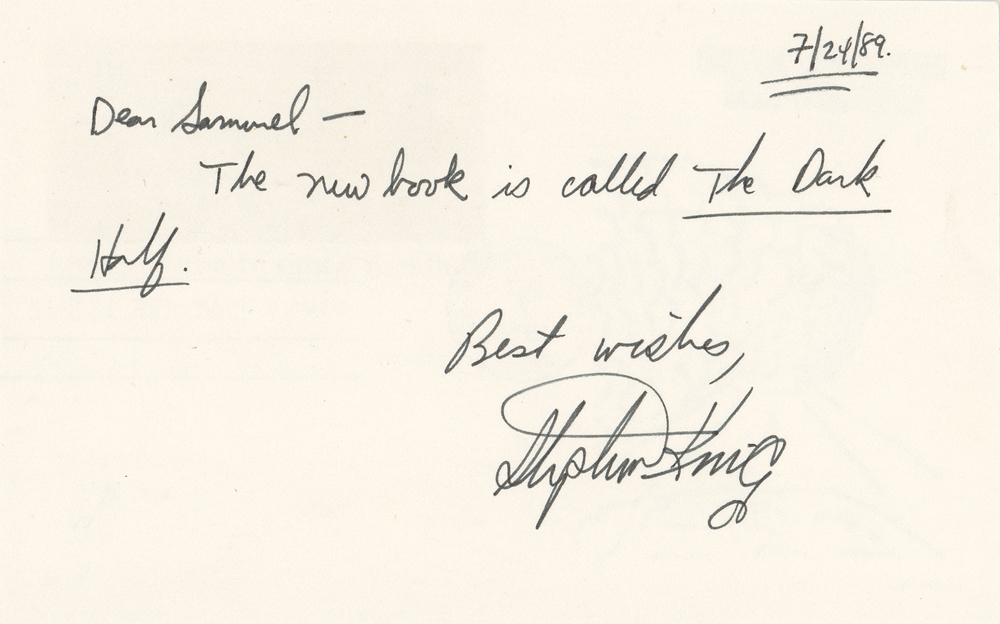 7/24/89.
Dear Samuel —
The new book is called The Dark
Half.
Best wishes,
Stephen King